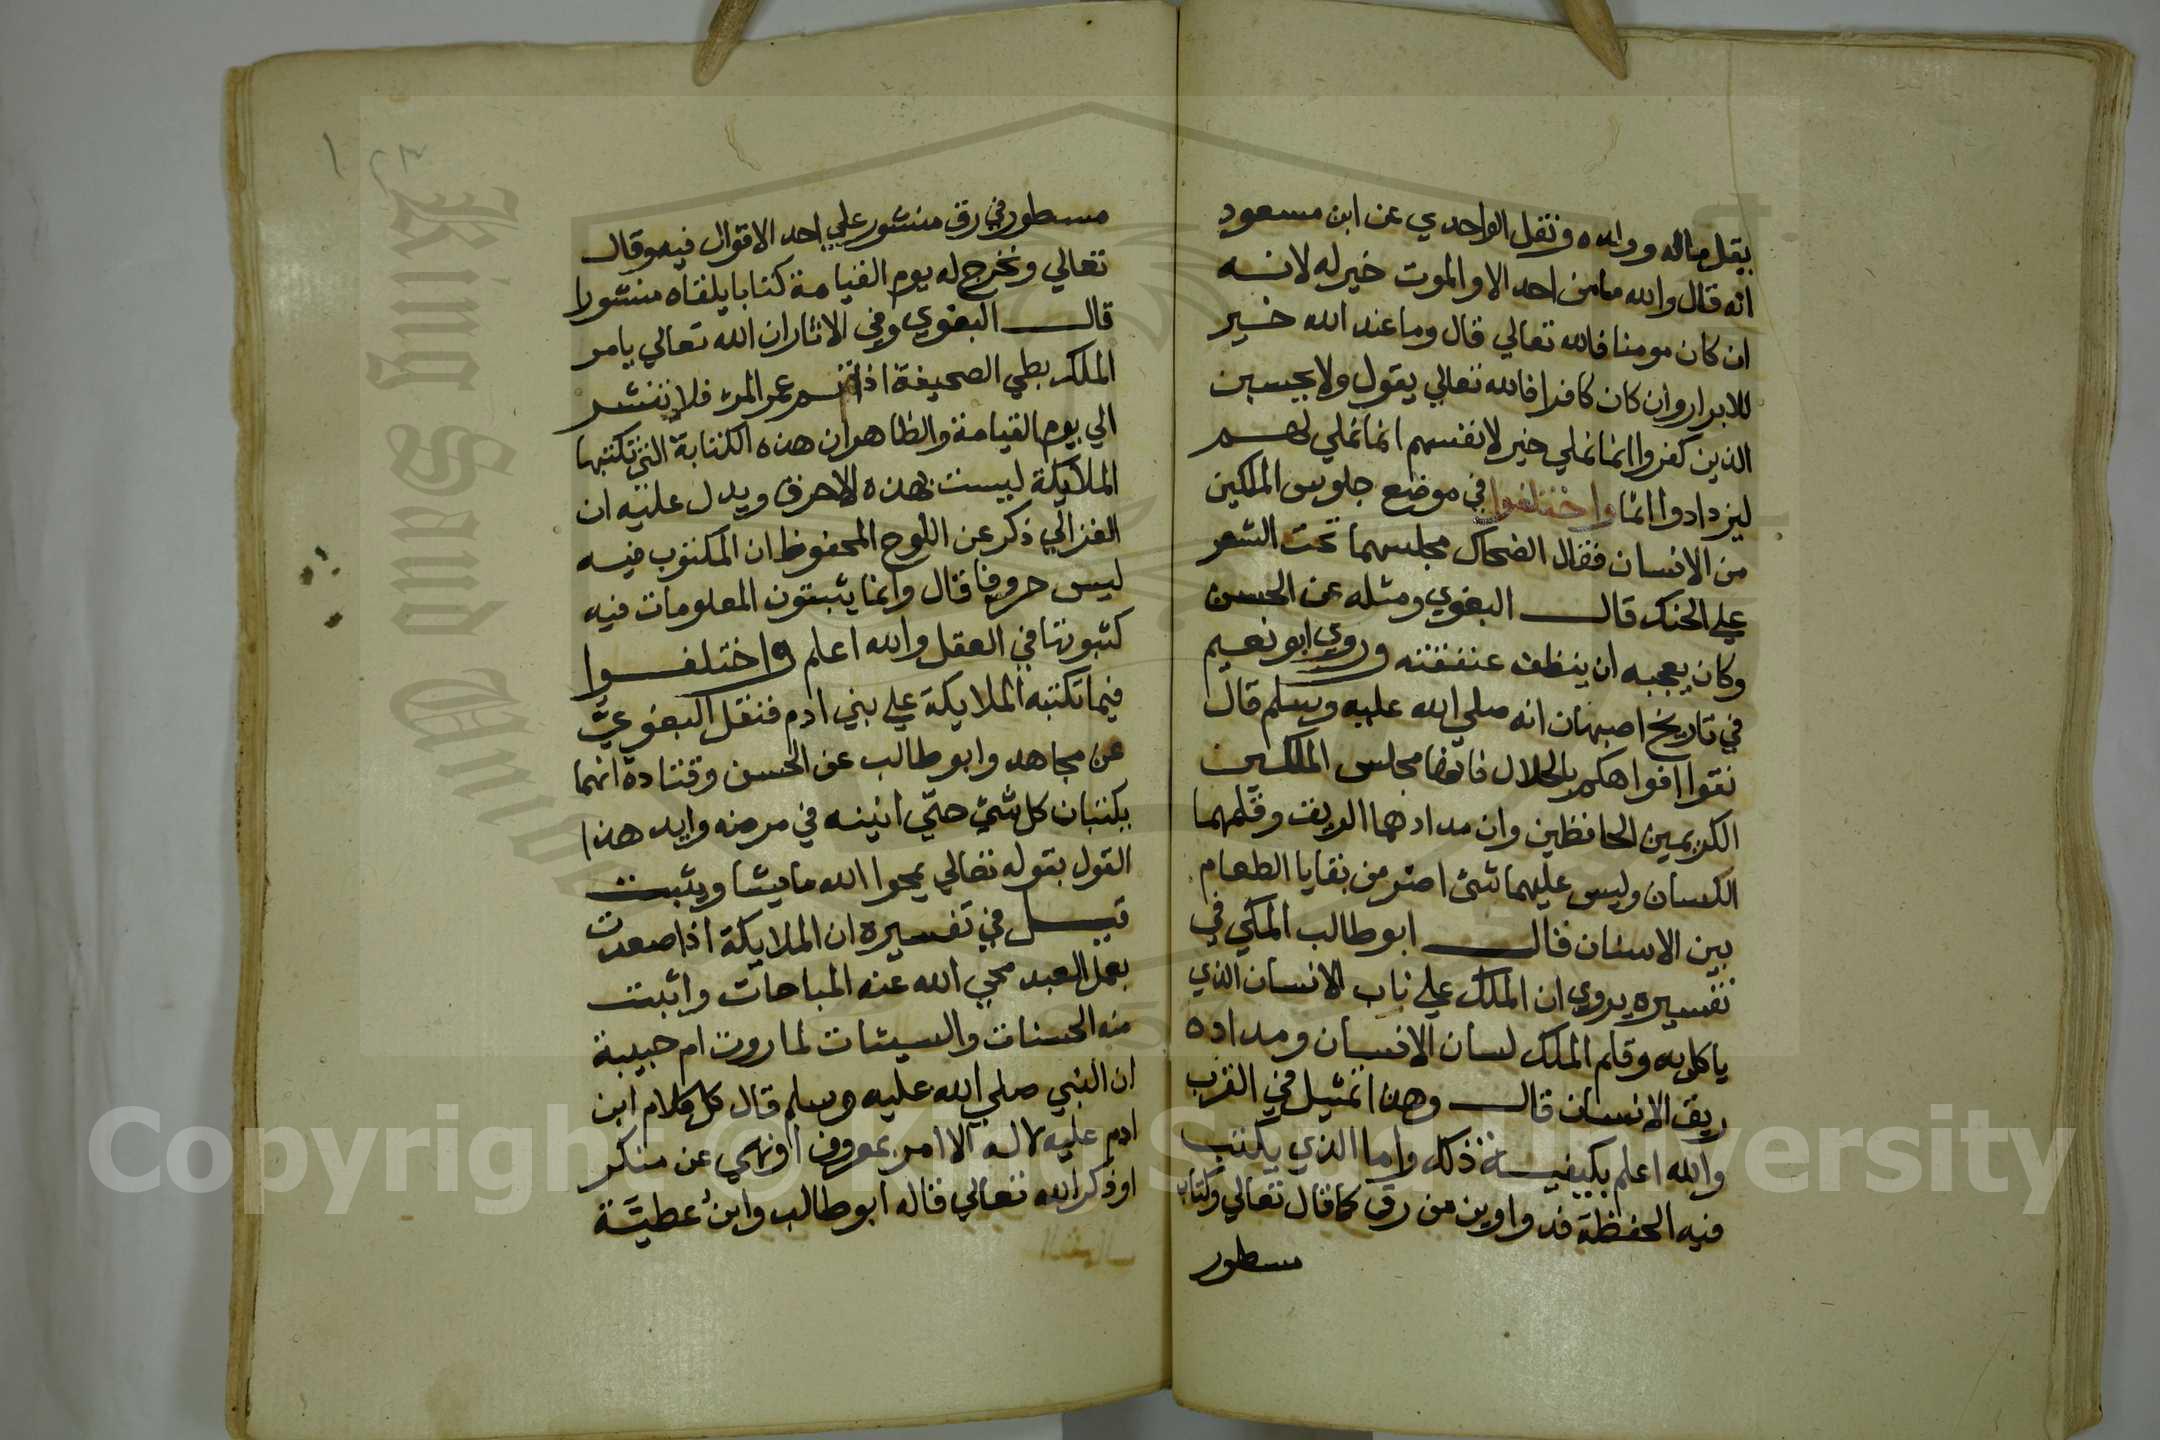 بيقل ماله وولده ونقل الواحدي عن ابن مسعود
انه قال والله مامن احد الا والموت خير له لانه
ان كان مومنا فالله تعالي قال وما عند الله خير
للابرار وان كان كافرا فالله تعالي يقول ولا يحسبن
الذين كفروا انما نملي خير لانفسهم انما نملي لهم
ليزدادوا اثما واختلفوا في موضع جلوس الملكين
من الانسان فقال الضحاك مجلسهما تحت الشعر
علي الحنك قال البغوي ومثله عن الحسن
وكان يعجبه ان ينظف عنفقته وروي ابو نعيم
في تاريخ اصبهان انه صلي الله عليه وسلم قال
نقوا افواهكم بالخلال فانها مجلس الملكين
الكريمين الحافظين وان مدادهما الريق وقلمهما
اللسان وليس عليهما شئ اضر من بقايا الطعام
بين الاسنان قال ابو طالب المكي في
تفسيره يروي ان الملك علي ناب الانسان الذي
ياكل به وقلم الملك لسان الانسان ومداده
ريق الانسان قال وهذا تمثيل في القرب
والله اعلم بكيفية ذلك واما الذي يكتب
فيه الحفظة فدواوين من رق كما قال تعالي وكتاب
سطور
مسطور في رق منشور علي احد الاقوال فيه وقال
تعالي ونخرج له يوم القيامة كتابا يلقاه منشورا
قال البغوي وفي الاثار ان الله تعالي يامر
الملك بطي الصحيفة اذا تم عمر المرء فلا تنشر
الي يوم القيامة والظاهر ان هذه الكتابة التي تكتبها
الملايكة ليست بهذه الاحرف ويدل عليه ان
الغزالي ذكر عن اللوح المحفوظ ان المكتوب فيه
ليس حروفا قال وانما يثبتون المعلومات فيه
كثبوتها في العقل والله اعلم واختلفوا
فيما تكتبه الملايكة علي بني ادم فنقل البغوي
عن مجاهد وابو طالب عن الحسن وقتادة انهما
يكتبان كل شئ حتي انينه في مرضه وايد هذا
القول بقوله تعالي يمحوا الله ما يشا ويثبت
قيل في تفسيره ان الملايكة اذا صعدت
بعمل العبد محي الله عنه المباحات واثبت
منه الحسنات والسيئات لما روت ام حبيبة
ان النبي صلي الله عليه وسلم قال كل كلام ابن
ادم عليه لا له الا امر بمعروف او نهي عن منكر
او ذكر الله تعالي قاله ابو طالب وابن عطية
King Saud University
Copyright © King Saud University